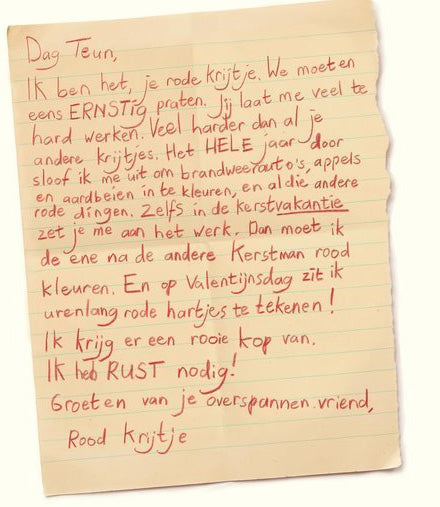 Dag Teun,
Ik ben het, je rode krijtje. We moeten
eens ERNSTIG praten. Jij laat me veel te
hard werken. Veel harder dan al je
andere krijtjes. Het HELE jaar door
sloof ik me uit om brandweerauto's, appels
en aardbeien in te kleuren, en al die andere
rode dingen. Zelfs in de kerstvakantie
zet je me aan het werk. Dan moet ik
de ene na de andere Kerstman rood
kleuren. En op Valentijnsdag zit ik
urenlang rode hartjes te tekenen!
Ik krijg er een rooie kop van.
Ik heb RUST nodig!
Groeten van je overspannen vriend,
Rood Krijtje